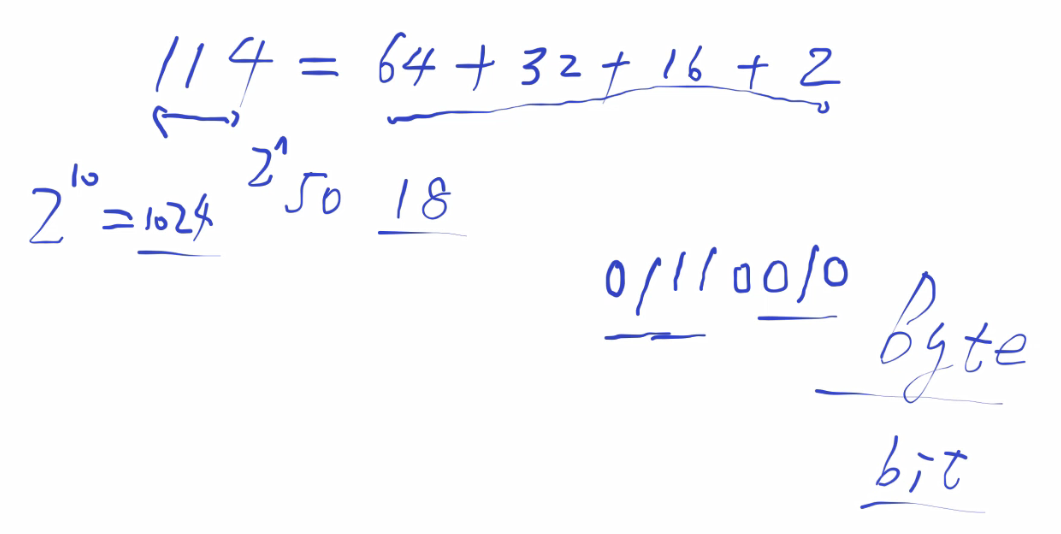 114 = 64 + 32 + 16 + 2
2^10 = 1024 2^1 50 18
01110010
Byte
bit